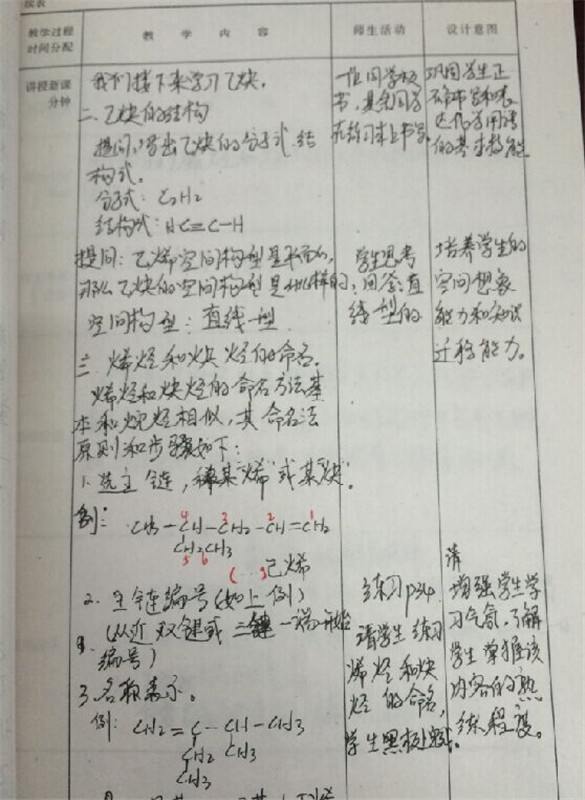 续表
教学过程
时间分配
教 学 内 容
师生活动
设计意图
讲授新课
分钟
我们接下来学习乙炔。
二、乙炔的结构
提问：写出乙炔的分子式、结
构式。
分子式：C2H2
结构式：HC≡C-H
提问：乙烯空间构型是平面的，
那么乙炔的空间构型是什么样的，
空间构型：直线型
三、烯烃和炔烃的命名。
烯烃和炔烃的命名方法基
本和烷烃相似，其命名法
原则和步骤如下：
1. 选主链，称某"烯"或某"炔"。
例：
4 3 2 1
CH3-CH-CH2-CH=CH2
CH2CH3
5 6
( )己烯
2. 主链编号（如上例）
（从近双键或三键一端开始
编号）
3. 名称表示。
例：CH2=C-CH-CH3
CH2 CH3
CH3
一位同学板
书，其余同学
在练习本上书写。
学生思考
回答：直
线型的
练习P34
请学生练习
烯烃和炔
烃的命名，
学生黑板
巩固学生正
确书写和表
达化学用语
的基本技能
培养学生的
空间想象
能力和知识
迁移能力。
请
增强学生学
习气氛，了解
学生掌握该
内容的熟
练程度。